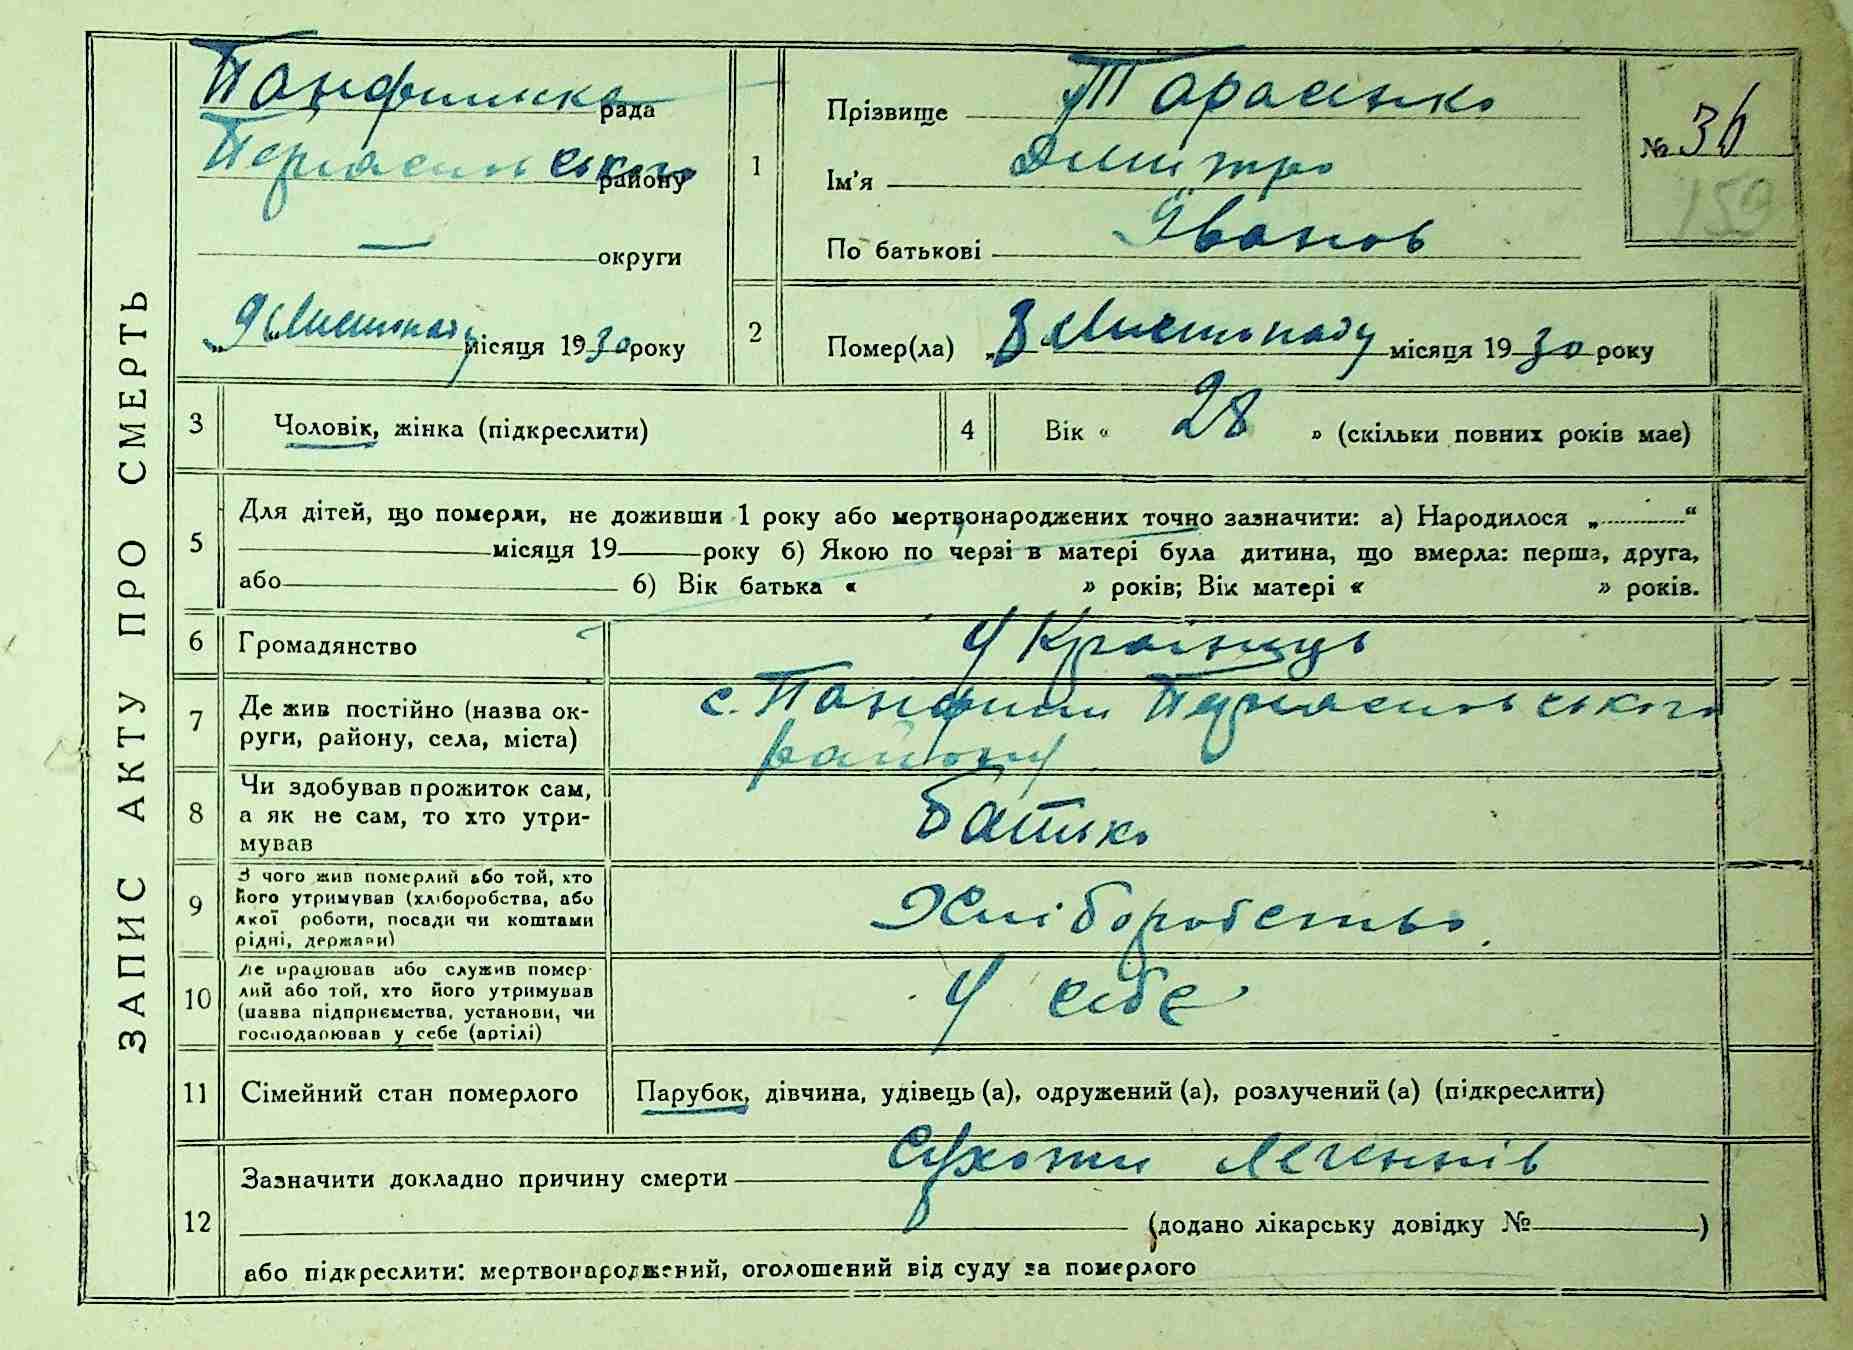 ЗАПИС АКТУ ПРО СМЕРТЬ
Панфилська рада
Переяславського району
— округи
„9" Листопаду місяця 1930 року
1
Прізвище Тарасенко
Ім'я Дмитро
По батькові Іванов
№ 36
159
2
Помер(ла) „8" Листопаду місяця 1930 року
3 Чоловік, жінка (підкреслити)
4 Вік « 28 » (скільки повних років має)
5
Для дітей, що померли, не доживши 1 року або мертвонароджених точно зазначити: а) Народилося „..............“
місяця 19 року б) Якою по черзі в матері була дитина, що вмерла: перша, друга,
або б) Вік батька « » років; Вік матері « » років.
6 Громадянство Українець
7 Де жив постійно (назва ок-
руги, району, села, міста)
с. Панфили Переяславського
району
8 Чи здобував прожиток сам,
а як не сам, то хто утри-
мував
батько
9 З чого жив померлий або той, хто
його утримував (хліборобства, або
якої роботи, посади чи коштами
рідні, держави)
Хліборобство
10 Де працював або служив помер-
лий або той, хто його утримував
(назва підприємства, установи, чи
господарював у себе (артілі)
У себе
11 Сімейний стан померлого Парубок, дівчина, удівець (а), одружений (а), розлучений (а) (підкреслити)
12
Зазначити докладно причину смерти Сухоти легеннів
(додано лікарську довідку № )
або підкреслити: мертвонароджений, оголошений від суду за померлого